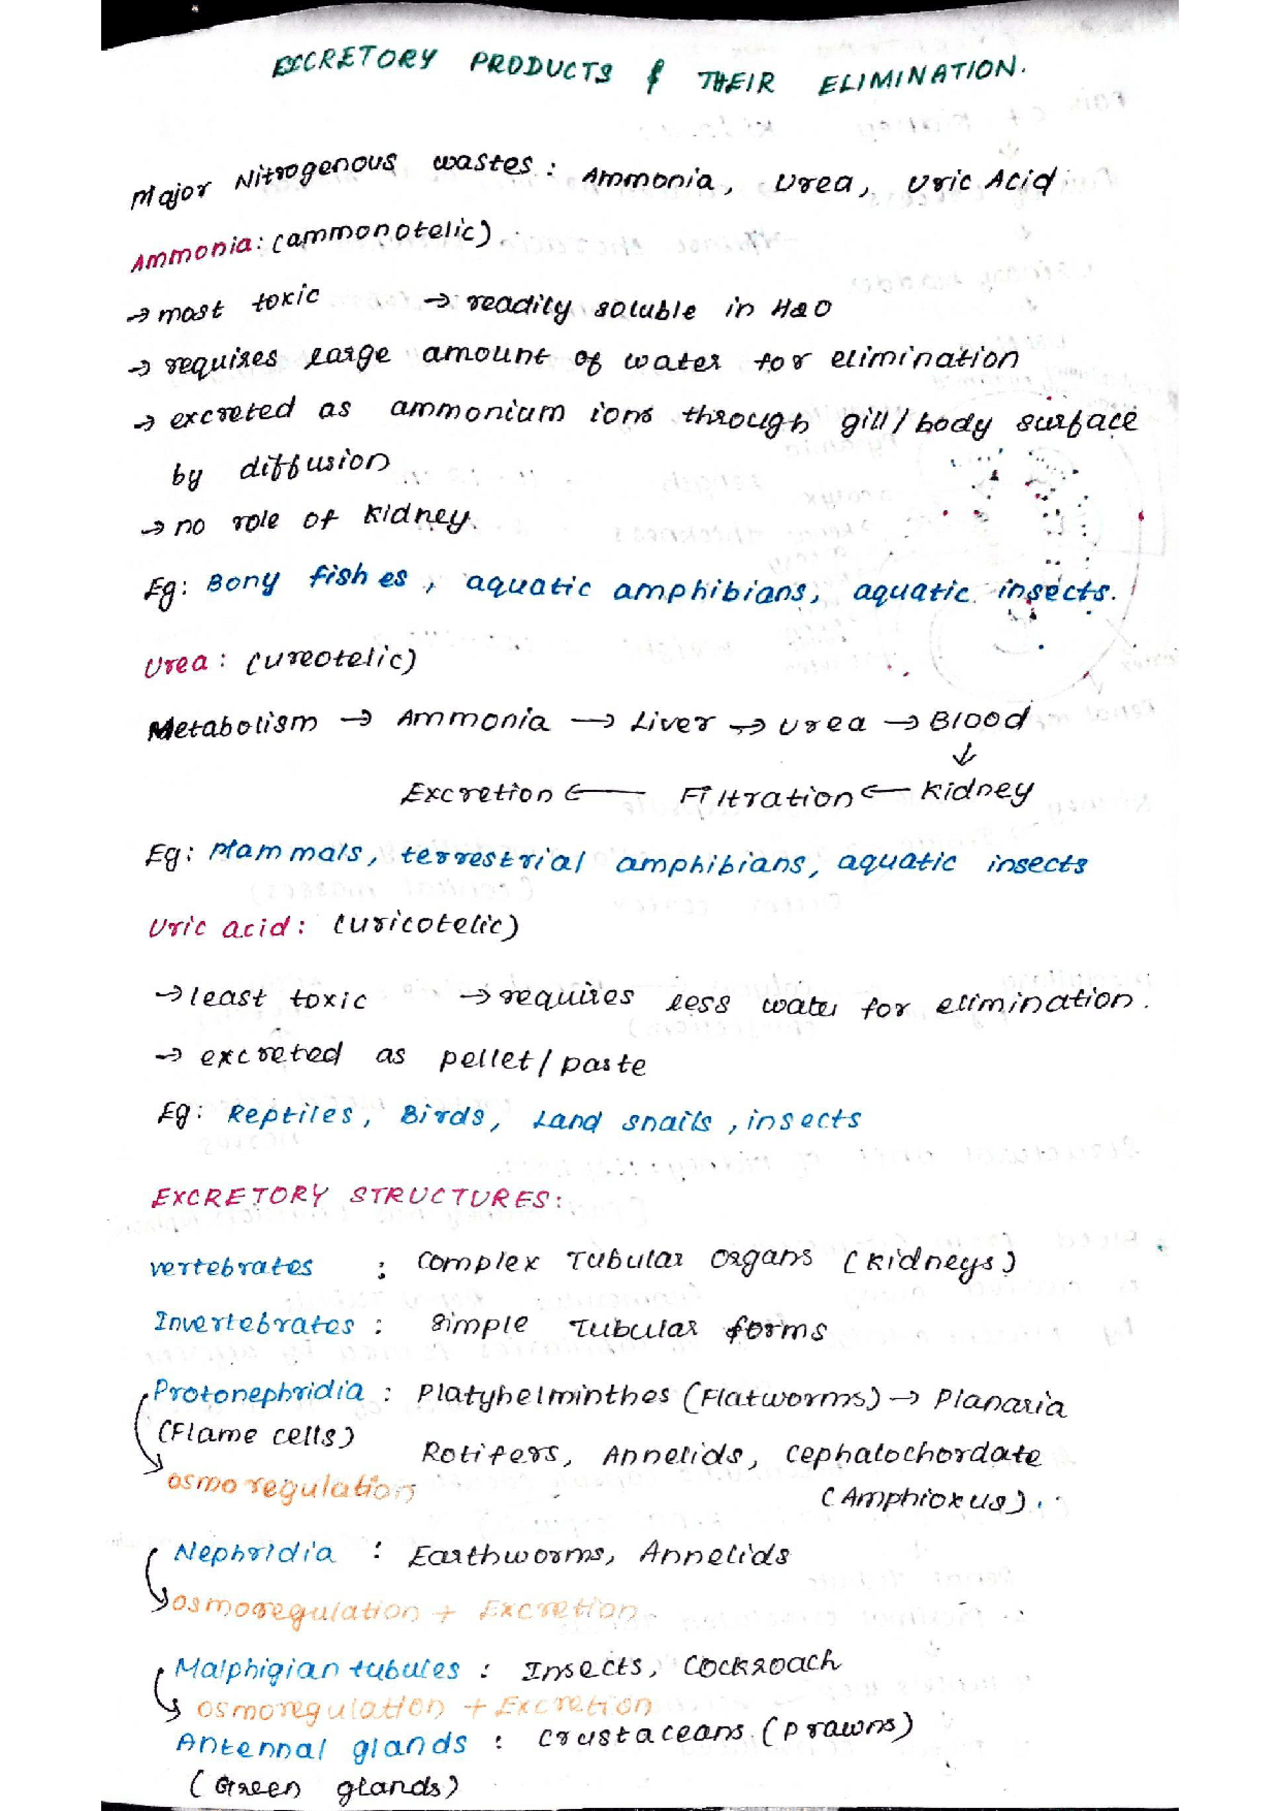 EXCRETORY PRODUCTS & THEIR ELIMINATION.
Major Nitrogenous wastes : Ammonia, Urea, Uric Acid
Ammonia: (ammonotelic)
→ most toxic → readily soluble in H2O
→ requires large amount of water for elimination
→ excreted as ammonium ions through gill/body surface
by diffusion
→ no role of kidney.
Eg: Bony fishes, aquatic amphibians, aquatic insects.
Urea: (ureotelic)
Metabolism → Ammonia → Liver → Urea → Blood
↓
Excretion ← Filtration ← Kidney
Eg: Mammals, terrestrial amphibians, aquatic insects
Uric acid: (uricotelic)
→ least toxic → requires less water for elimination.
→ excreted as pellet/paste
Eg: Reptiles, Birds, Land snails, insects
EXCRETORY STRUCTURES:
vertebrates : complex Tubular organs (kidneys)
Invertebrates : simple Tubular forms
Protonephridia : Platyhelminthes (Flatworms) → Planaria
(Flame cells) Rotifers, Annelids, cephalochordate
osmoregulation (Amphioxus).
Nephridia : Earthworms, Annelids
osmoregulation + Excretion
Malphigian tubules : Insects, Cockroach
osmoregulation + Excretion
Antennal glands : Crustaceans (prawns)
(Green glands)